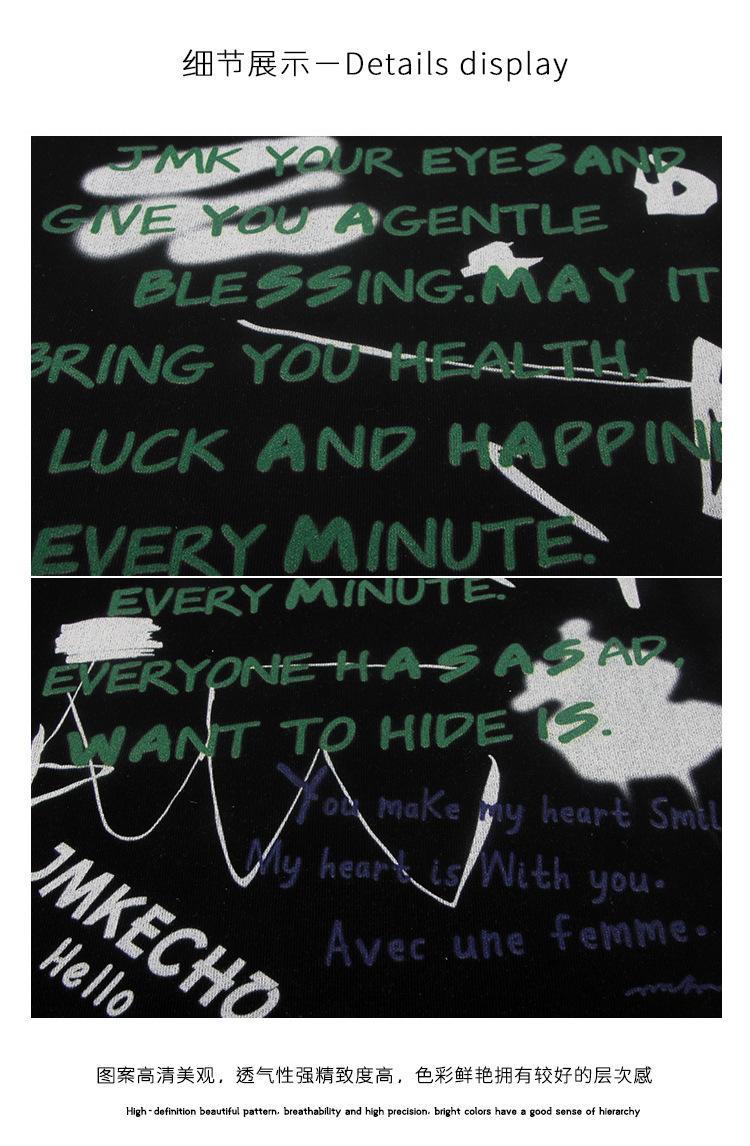 细节展示—Details display
JMK YOUR EYES AND
GIVE YOU A GENTLE
BLESSING. MAY IT
BRING YOU HEALTH,
LUCK AND HAPPIN
EVERY MINUTE.
EVERY MINUTE.
EVERYONE HAS A SAD,
WANT TO HIDE IS.
You make my heart Smil
My heart is With you.
Avec une femme.
JMKECHO
Hello
图案高清美观，透气性强精致度高，色彩鲜艳拥有较好的层次感
High-definition beautiful pattern, breathability and high precision, bright colors have a good sense of hierarchy